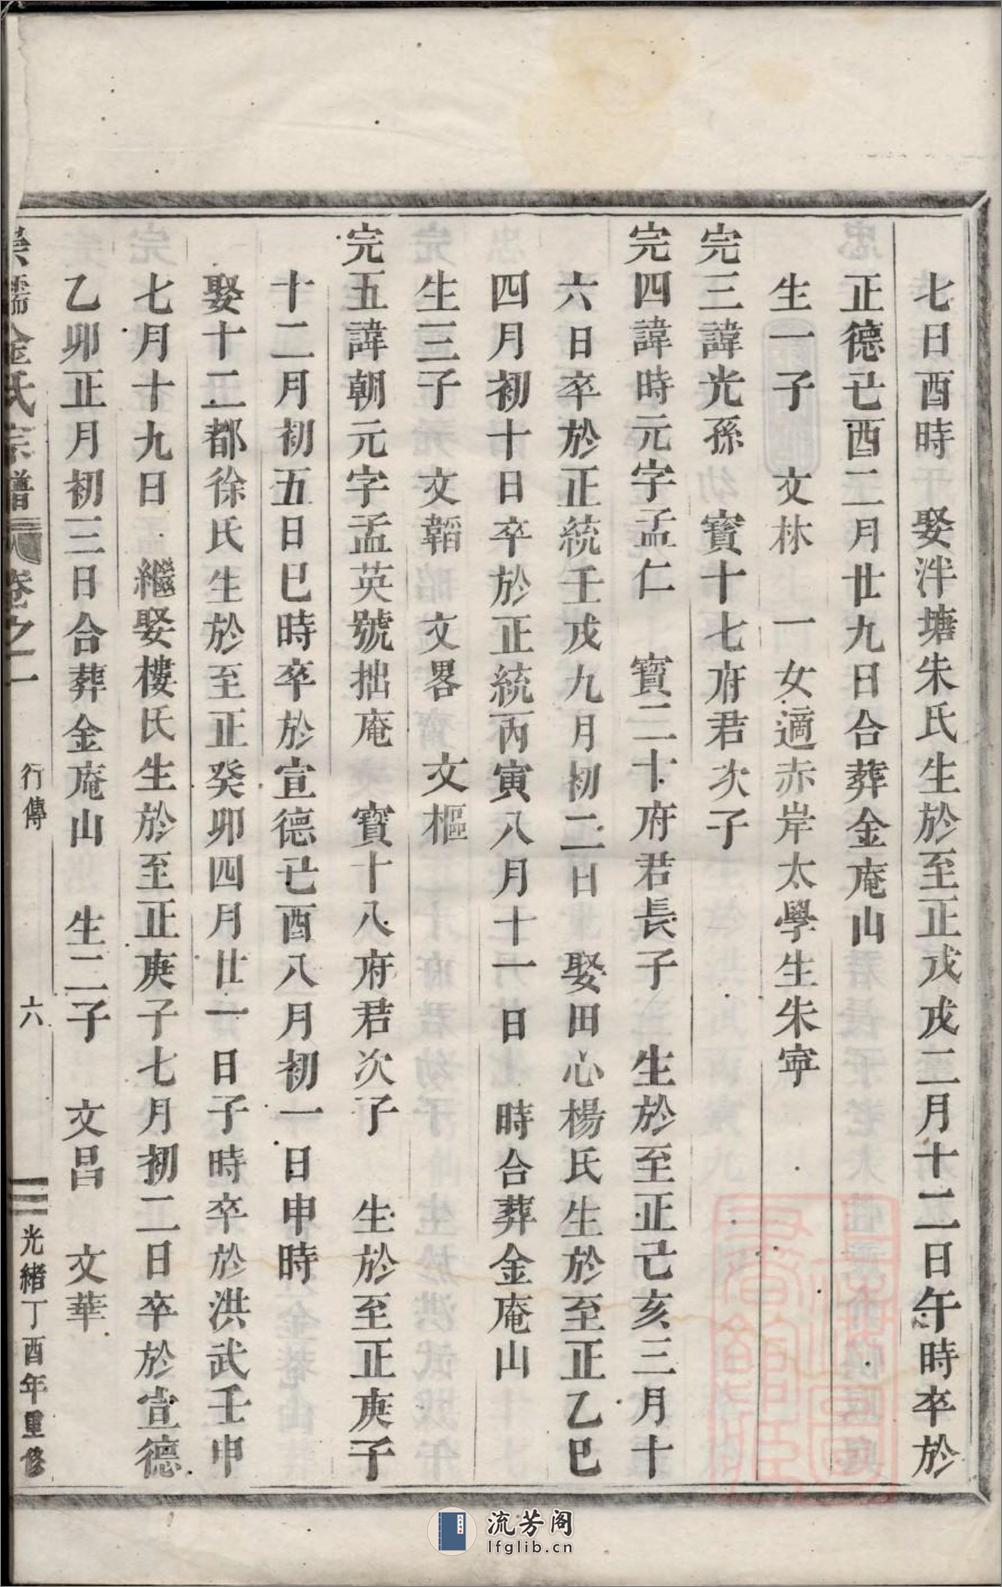 七日酉時　娶泮塘朱氏生於至正戊戌二月十二日午時卒於
正德己酉二月廿九日合葬金庵山
生一子　文林　一女適赤岸太學生朱寧
完三諱光孫　寶十七府君次子
完四諱時元字孟仁　寶二十府君長子　生於至正己亥三月十
六日卒於正統壬戌九月初二日　娶田心楊氏生於至正乙巳
四月初十日卒於正統丙寅八月十一日　時合葬金庵山
生三子　文韜　文畧　文樞
完五諱朝元字孟英號拙庵　寶十八府君次子　生於至正庚子
十二月初五日巳時卒於宣德己酉八月初一日申時
娶十二都徐氏生於至正癸卯四月廿一日子時卒於洪武壬申
七月十九日　繼娶樓氏生於至正庚子七月初二日卒於宣德
乙卯正月初三日合葬金庵山　生二子　文昌　文華
崇儒金氏宗譜　卷之一　行傳　六　光緒丁酉年重修
流芳阁
lfglib.cn